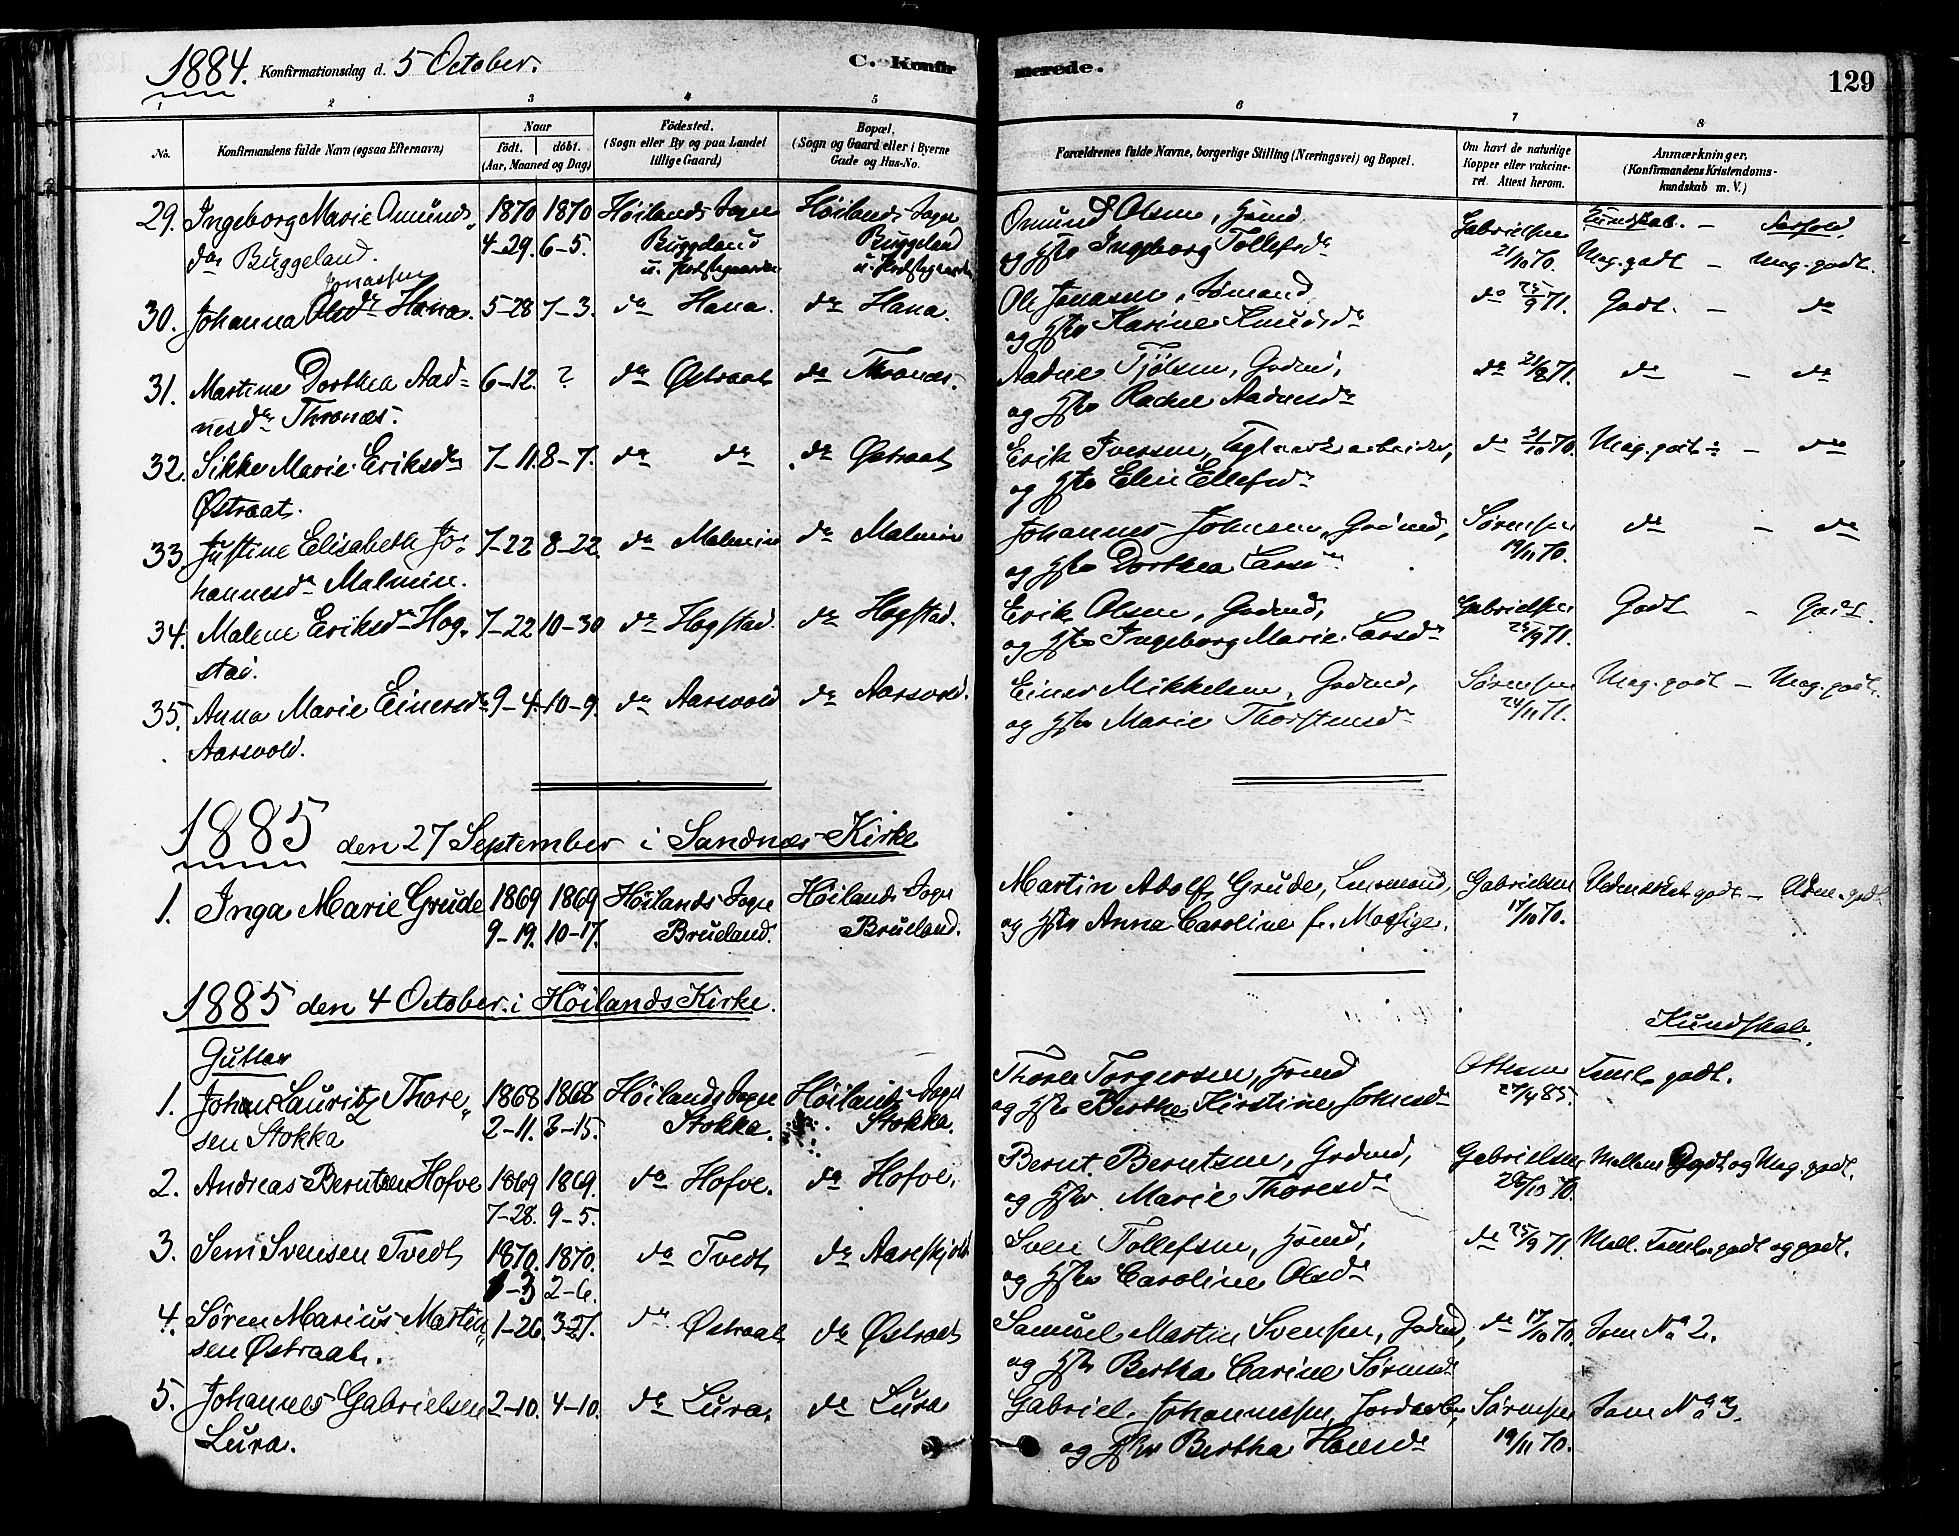 1884. Konfirmationsdag d. 5 October. C. Konfirmerede. 129
1 2 3 4 5 6 7 8
No. Konfirmandens fulde Navn (ogsaa Efternavn) Naar født. døbt. (Aar, Maaned og Dag) Fødested. (Sogn eller By og paa Landet tillige Gaard) Bopæl. (Sogn og Gaard eller i Byerne Gade og Hus-No. Forældrenes fulde Navne, borgerlige Stilling (Næringsvei) og Bopæl. Om havt de naturlige Kopper eller vakcineret. Attest herom. Anmærkninger. (Konfirmandens Kristendomskundskab m. V.)
29. Ingeborg Marie Omunds- 1870 1870 Höilands Sogn Höilands Sogn Omund Olsen, Hsmd Gabrielsen Kundskab. – Forhold.
da Buggeland. 4-29. 6-5. Buggeland Buggeland og Hstr Ingeborg Tollefsda 21/10 70. Meg. godt – Meg. godt.
u. Prestegaarden u. Prestegaarden
Jonassen
30. Johanna Olsda Hana. 5-28 7-3. do Hana. do Hana. Ole Jonasen, Sømand do 25/9 71. Godt. – do
og Hstr Karine Knudsda
31. Martine Dorthea Aad- 6-12. ? do Østraat do Thronæs. Aadne Tjölsen, Gadmd, do 21/8 71. do – do
nesda Thronæs. og Hstr Rachel Aadnesda
32. Sikke Marie Eriksda 7-11. 8-7. do do do Østraat Erik Iversen, Teglverksarbeider, do 31/10 70. Meg. godt ÷ – do
Østraat. og Hstr Elen Ellefsda
33. Justine Elisabeth Jo- 7-22 8-22 do Malmin do Malmin Johannes Johnsen, Gadmd, Sørensen do – do
hannesda Malmin. og Hstr Dorthea Larsda 19/11 70.
34. Malene Eriksda Hog- 7-22 10-30 do Hogstad. do Hogstad. Erik Olsen, Gadmd, Gabrielsen Godt – Godt.
stad. og Hstr Ingeborg Marie Larsda 25/9 71.
35. Anna Marie Einersda 9-4. 10-9. do Aarsvold do Aarsvold. Einer Mikkelsen, Gadmd, Sørensen Meg. godt – Meg. godt.
Aarsvold. og Hstr Marie Thorstensda 24/11 71.
1885 den 27 September i Sandnæs Kirke
1. Inga Marie Grude 1869 1869 Höilands Sogn Höilands Sogn Martin Adolf Grude, Lensmand, Gabrielsen Udmærket godt – Udm. godt
9-19. 10-17. Brueland. Brueland. og Hstr Anna Caroline f. Mossige. 17/10 70.
1885 den 4 October i Höilands Kirke.
Kundskab.
Gutter
1. Johan Lauritz Thore- 1868 1868 Höilands Sogn Höilands Sogn Thore Torgersen, Hsmd Ottesen Temlig godt.
sen Stokka 2-11. 3-15. Stokka. Stokka. og Hstr Berthe Kirstine Johnsda 27/4 85.
2. Andreas Berntsen Hofve 1869 1869. do Hofve. do Hofve. Bernt Berntsen, Gadmd, Gabrielsen Mellem Godt og Meg. godt.
7-28. 9-5. og Hstr Marie Thoresda 26/10 70.
3. Sem Svensen Tvedt 1870. 1870. do Tvedt do Sven Tollefsen, Hsmd, do 25/9 71. Mell. Temlig godt og godt.
1-3 2-6. og Hstr Caroline Olsda
4. Søren Marius Martin- 1-26. 3-27. do Østraat do Østraat Samuel Martin Svensen, Gadmd, do 17/10 70. Som No 2.
sen Østraat. og Hstr Bertha Carine Sørensda
5. Johannes Gabrielsen 2-10. 4-10. do Lura. do Lura Gabriel Johannesen, Jordarb., Sørensen Som No 3.
Lura. og Hstr Bertha Hansda 19/11 70.